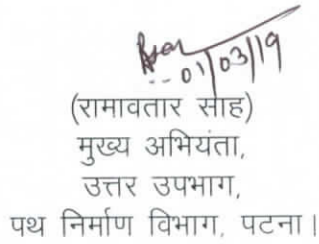 01/03/19
(रामावतार साह)
मुख्य अभियंता,
उत्तर उपभाग,
पथ निर्माण विभाग, पटना।